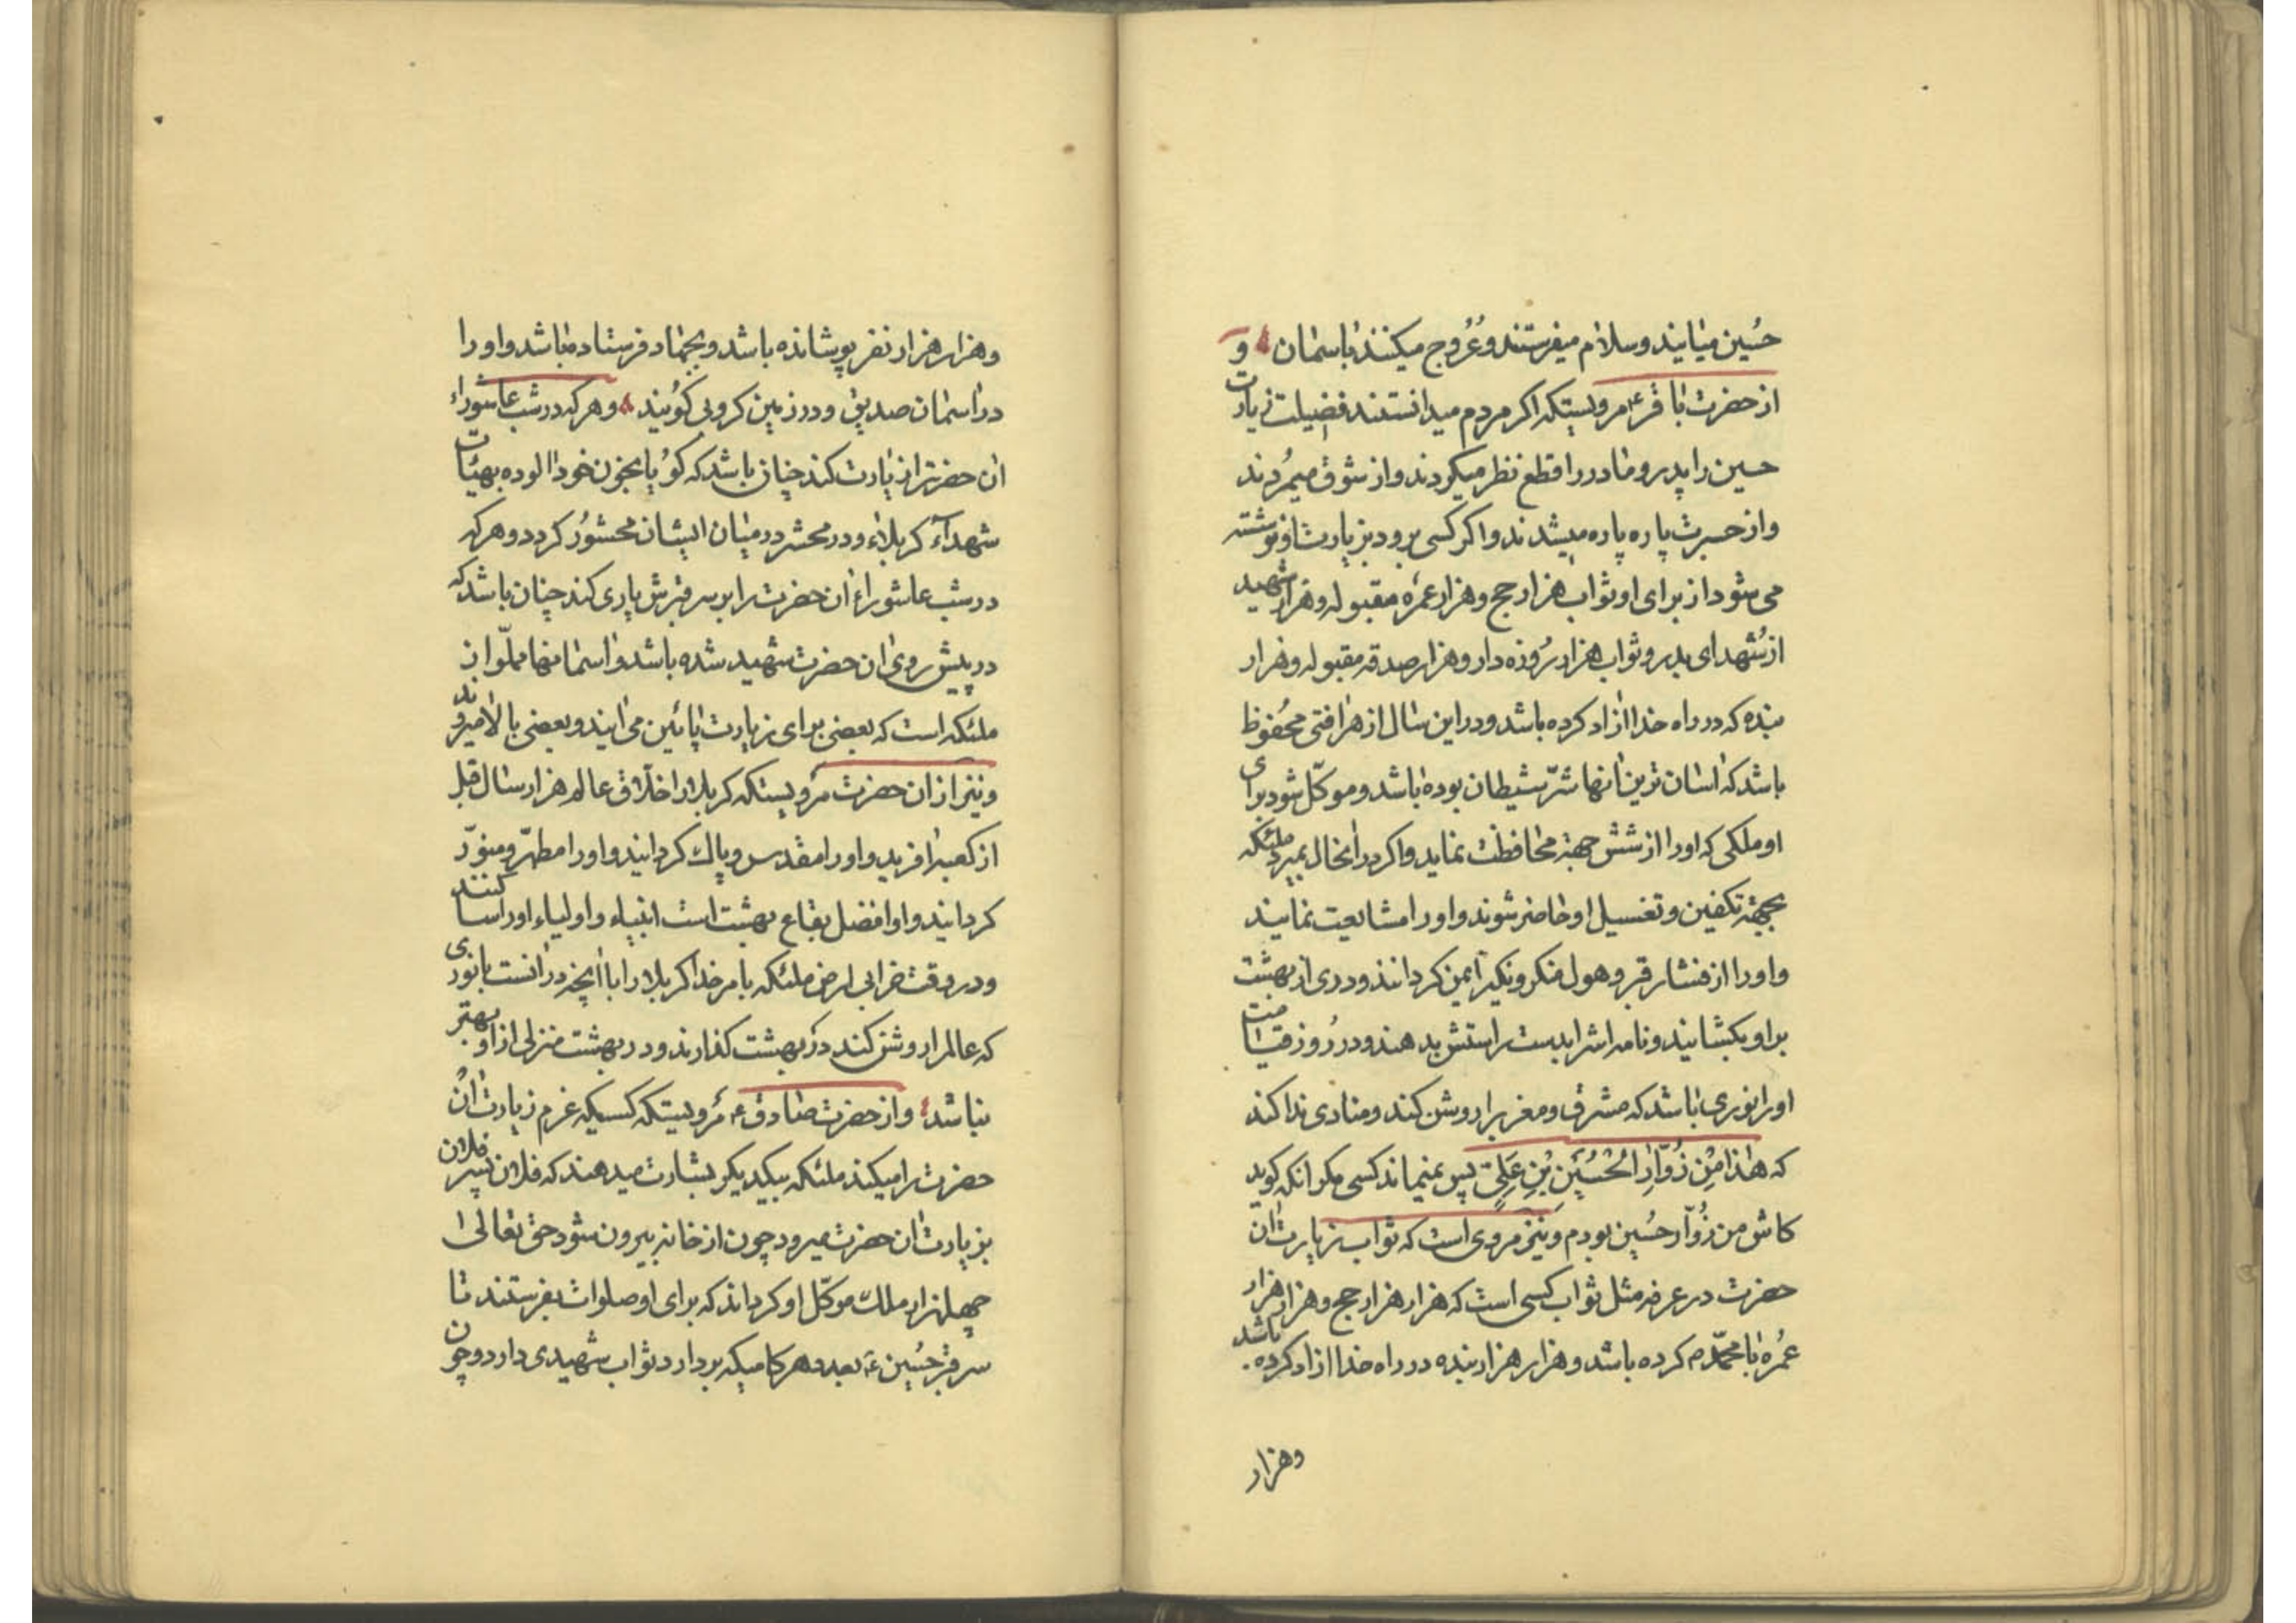 حُسین میایند و سلام میفرستند و عُرُوج میکنند باسمان و
از حضرت باقر ع مرویستکه اکر مردم میدانستند فضیلت زیارت
حسین را پدر و مادر را قطع نظر میکردند و از شوق میمُردند
و از حسرت پاره پاره میشدند و اکر کسی برود بزیارت او نوشته
می شود از برای او ثواب هزار حج و هزار عمره مقبوله و هزار شهید
از شُهدای بدر و ثواب هزار رُوزه دار و هزار صدقه مقبوله و هزار
بنده که در راه خدا ازاد کرده باشد و در این سال از هر افتی محُفوظ
باشد که اسان ترین انها شرّ شیطان بوده باشد و موکّل شود برای
او ملکی که او را از شش جهة محافظت نماید و اکر در انحال بمیرد ملئکه
بجهة تکفین و تغسیل او حاضر شوند و او را مشایعت نمایند
و او را از فشار قبر و هول منکر و نکیر ایمن کردانند و دری از بهشت
بر او بکشایند و نامه اشرا بدست راستش بدهند و در رُوز قیامت
او را نوری باشد که مشرق و مغرب را روشن کند و منادی ندا کند
که هٰذا مِنْ زُوّارِ الْحُسَیْنِ بْنِ عَلِیٍّ پس نمیماند کسی مکر انکه کوید
کاش من زُوّار حُسین بودم و نیز مروی است که ثواب زیارت ان
حضرت در عرفه مثل ثواب کسی است که هزار هزار حج و هزار هزار
عُمره با محمّد ص کرده باشد و هزار هزار بنده در راه خدا ازاد کرده باشد
و هزار
و هزار هزار نفر پوشانده باشد و بجهاد فرستاده باشد و او را
در اسمان صدیق و در زمین کروبی کویند و هر که در شب عاشوراء
ان حضرترا زیارت کند چنان باشد که کویا بخون خود الوده بهیئات
شهدآء کربلاء و در محشر در میان ایشان محشُور کردد و هر که
در شب عاشوراء ان حضرت را بر سر قبرش یاری کند چنان باشد که
در پیش روی ان حضرت شهید شده باشد و اسمانها مملّو از
ملئکه است که بعضی برای زیارت پائین می ایند و بعضی بالا میروند
و نیز از ان حضرت مرویستکه کربلا را خلاق عالم هزار سال قبل
از کعبه افرید و او را مقدس و پاک کردانید و او را مطهّر و منوّر
کردانید و او افضل بقاع بهشت است انبیاء و اولیاء او را سا کنند
و در وقت خرابی ارض ملئکه بامر خدا کربلا را با انچه در انست با نوری
که عالم را روشن کند در بهشت کذارند و در بهشت منزلی از او بهتر
نباشد و از حضرت صادق ع مرویستکه کسیکه عزم زیارت ان
حضرت را میکند ملئکه بیکدیکر بشارت میدهند که فلان پسر فلان
بزیارت ان حضرت میرود چون از خانه بیرون شود حق تعالی
چهلهزار ملک موکّل او کرداند که برای او صلوات بفرستند تا
سر قبر حُسین ع بعد و هر کامیکه بردارد ثواب شهیدی دارد و چون